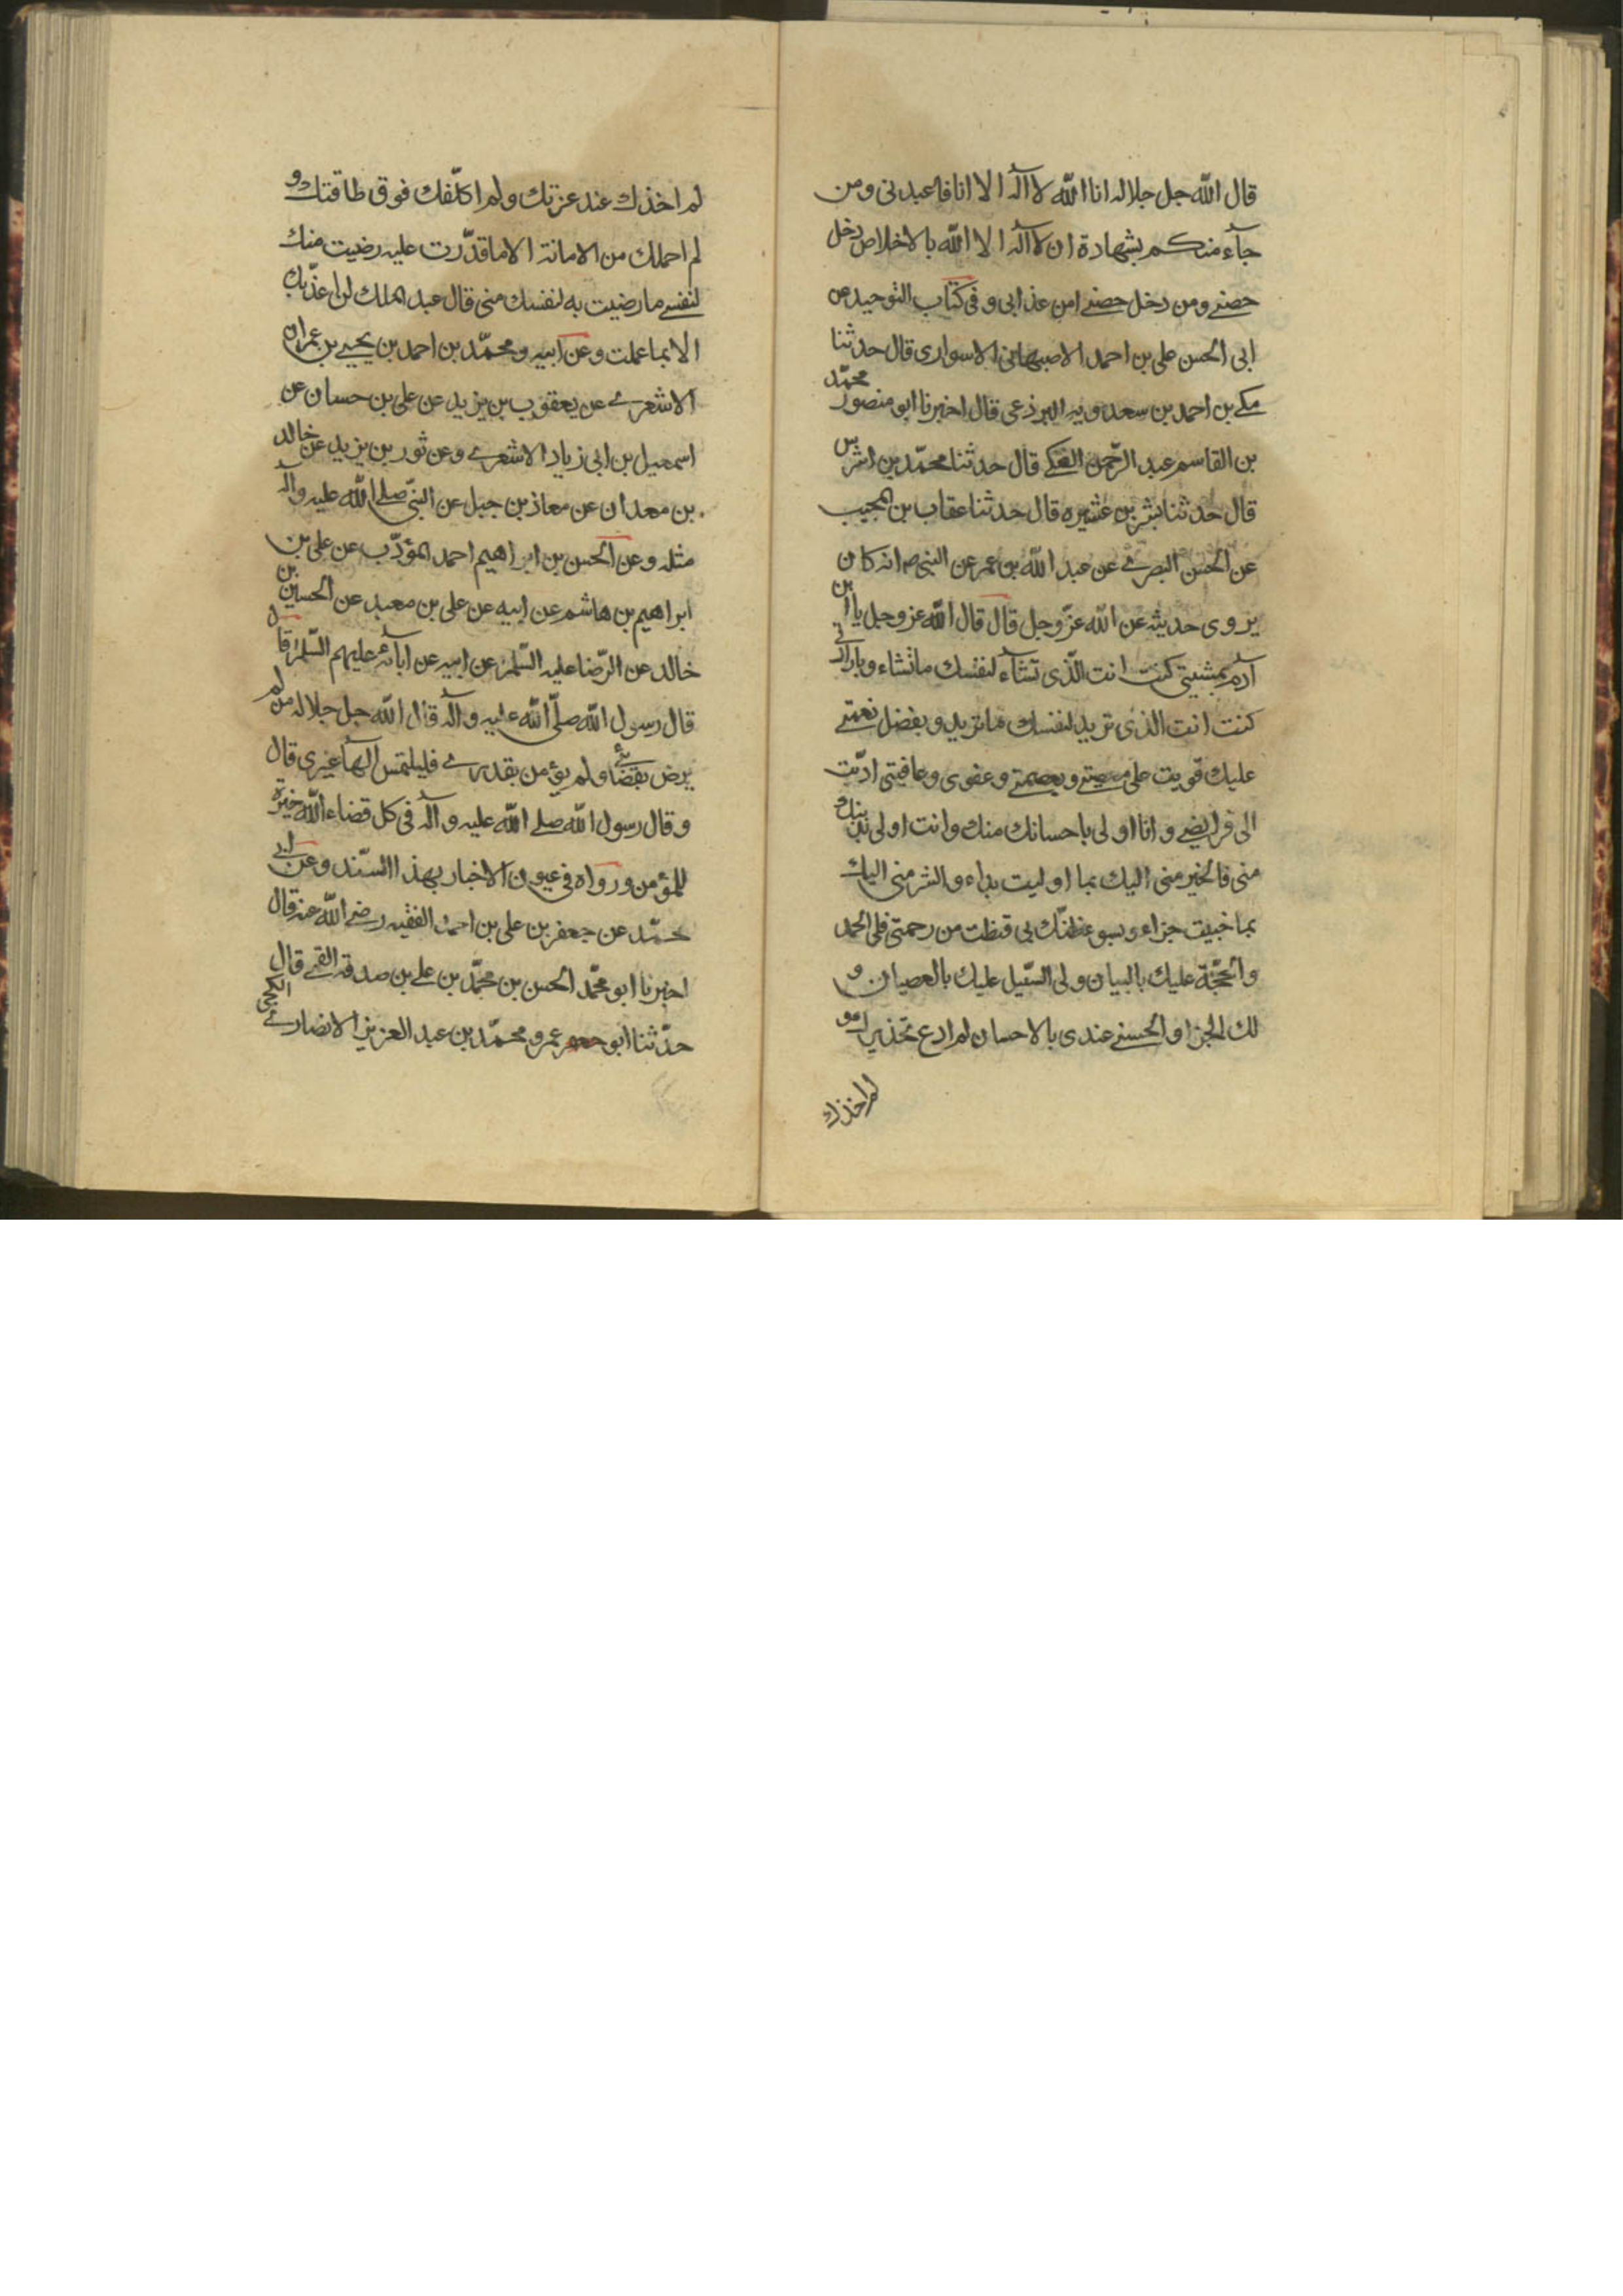 قال الله جل جلاله انا الله لا آله الا انا فاعبدنی ومن
جآء منكم بشهادة ان لا آله الا الله بالاخلاص دخل
حصنے ومن دخل حصنے امن عذابی و فی كتاب التوحيد عن
ابی الحسن علی بن احمد الاصبهانی الاسواری قال حدثنا
مكے بن احمد بن سعدويه البرذعی قال اخبرنا ابو منصور محمّد
بن القاسم عبد الرّحمن العكے قال حدثنا محمّد بن اشرس
قال حدثنا بشر بن قال حدثنا عقاب بن المجيب
عن الحسن البصرے عن عبد الله بن عمر عن النبی ص انه كان
يروی حديثه عن الله عزّ وجل قال قال الله عز وجل يا ابن
آدم بمشيتی كنت انت الّذی تشآء لنفسك ما تشاء وبارادتی
كنت انت الذی تريد لنفسك ما تريد و بفضل نعمتے
عليك قويت علی معصيتے وبعصمتے وعفوی وعافيتی ادّيت
الی فرايضے و انا اولی باحسانك منك وانت اولی بذنبك
منی فالخير منی اليك بما اوليت بداء والشر منی اليك
بما جنيت جزاء و بسوء ظنّك بی قنطت من رحمتی فلی الحمد
والحجّة عليك بالبيان ولی السّبيل عليك بالعصيان و
لك الجزا و الحسنے عندی بالاحسان لم ادع تحذيرك و
لم اخذك
لم اخذك عند عزتك ولم اكلّفك فوق طاقتك و
لم احملك من الامانة الا ما قدّرت عليه رضيت منك
لنفسے ما رضيت به لنفسك منی قال عبد الملك لن اعذّبك
الا بما عملت وعن ابيه و محمّد بن احمد بن يحيے بن عمران
الاشعرے عن يعقوب بن يزيد عن علی بن حسان عن
اسمعيل بن ابی زياد الاشعرے وعن ثور بن يزيد عن خالد
بن معدان عن معاذ بن جبل عن النبّی صلے الله عليه وآله
مثله وعن الحسن بن ابراهيم احمد المؤدّب عن علی بن
ابراهيم بن هاشم عن ابيه عن علی بن معبد عن الحسين بن
خالد عن الرّضا عليه السّلم عن ابيه عن ابآئه عليهم السّلم قال
قال رسول الله صلّی الله عليه وآله قال الله جل جلاله من لم
يرض بقضائے ولم يؤمن بقدرے فليلتمس الها غيری قال
و قال رسول الله صلے الله عليه وآله فی كل قضاء الله خيرة
للمؤمن ورواه فی عيون الاخبار بهذا السّند وعن ابے
محمّد عن جعفر بن علی بن احمد الفقيه رضے الله عنه قال
اخبرنا ابو محمّد الحسن بن محمّد بن علے بن صدقه القمے قال
حدّثنا ابو عمرو محمّد بن عبد العزيز الانصارے الكجی